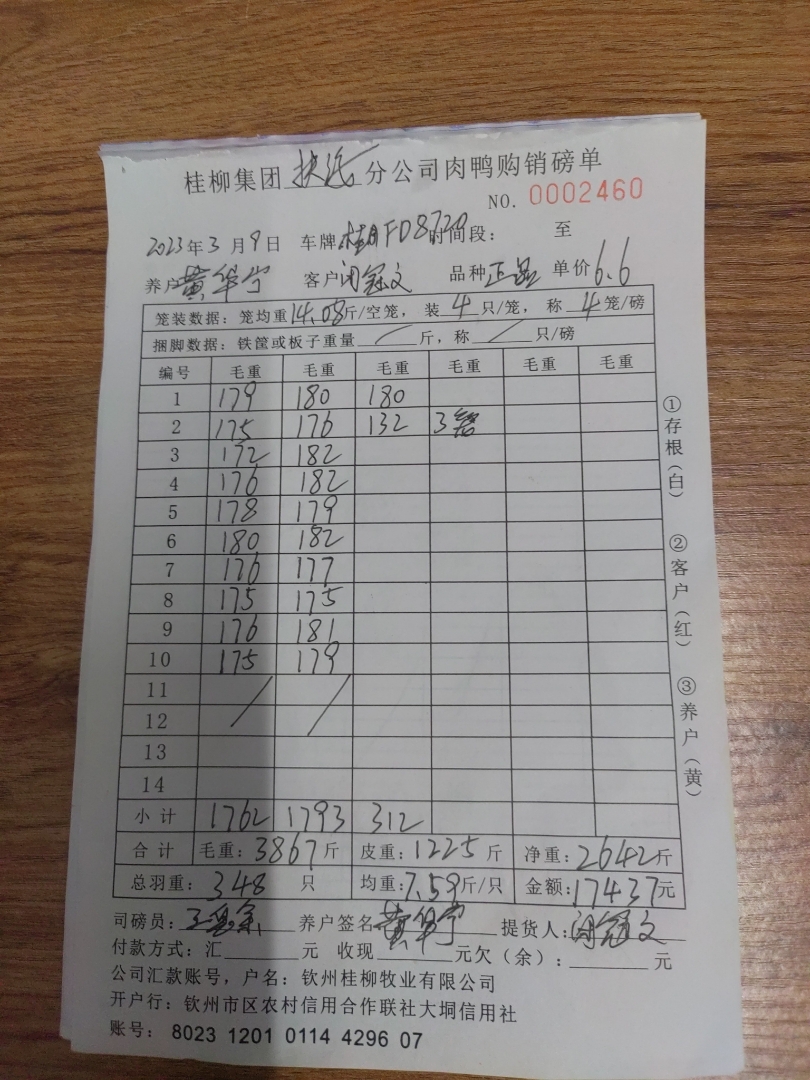 桂柳集团 分公司肉鸭购销磅单
NO. 0002460
2023年3月9日 车牌:桂FD8720 时间段: 至
养户黄华宁 客户闭冠文 品种正品 单价6.6
笼装数据:笼均重14.08斤/空笼,装4只/笼,称4笼/磅
捆脚数据:铁筐或板子重量/斤,称/只/磅
编号 毛重 毛重 毛重 毛重 毛重 毛重
1 179 180 180
2 175 176 132 3笼
3 172 182
4 176 182
5 178 179
6 180 182
7 176 177
8 175 175
9 176 181
10 175 179
11
12
13
14
小计 1762 1793 312
合计 毛重:3867斤 皮重:1225斤 净重:2642斤
总羽重:348只 均重:7.59斤/只 金额:17437元
司磅员: 养户签名黄华宁 提货人:闭冠文
付款方式:汇 元 收现 元欠(余): 元
公司汇款账号,户名:钦州桂柳牧业有限公司
开户行:钦州市区农村信用合作联社大垌信用社
账号: 8023 1201 0114 4296 07
①存根(白)
②客户(红)
③养户(黄)